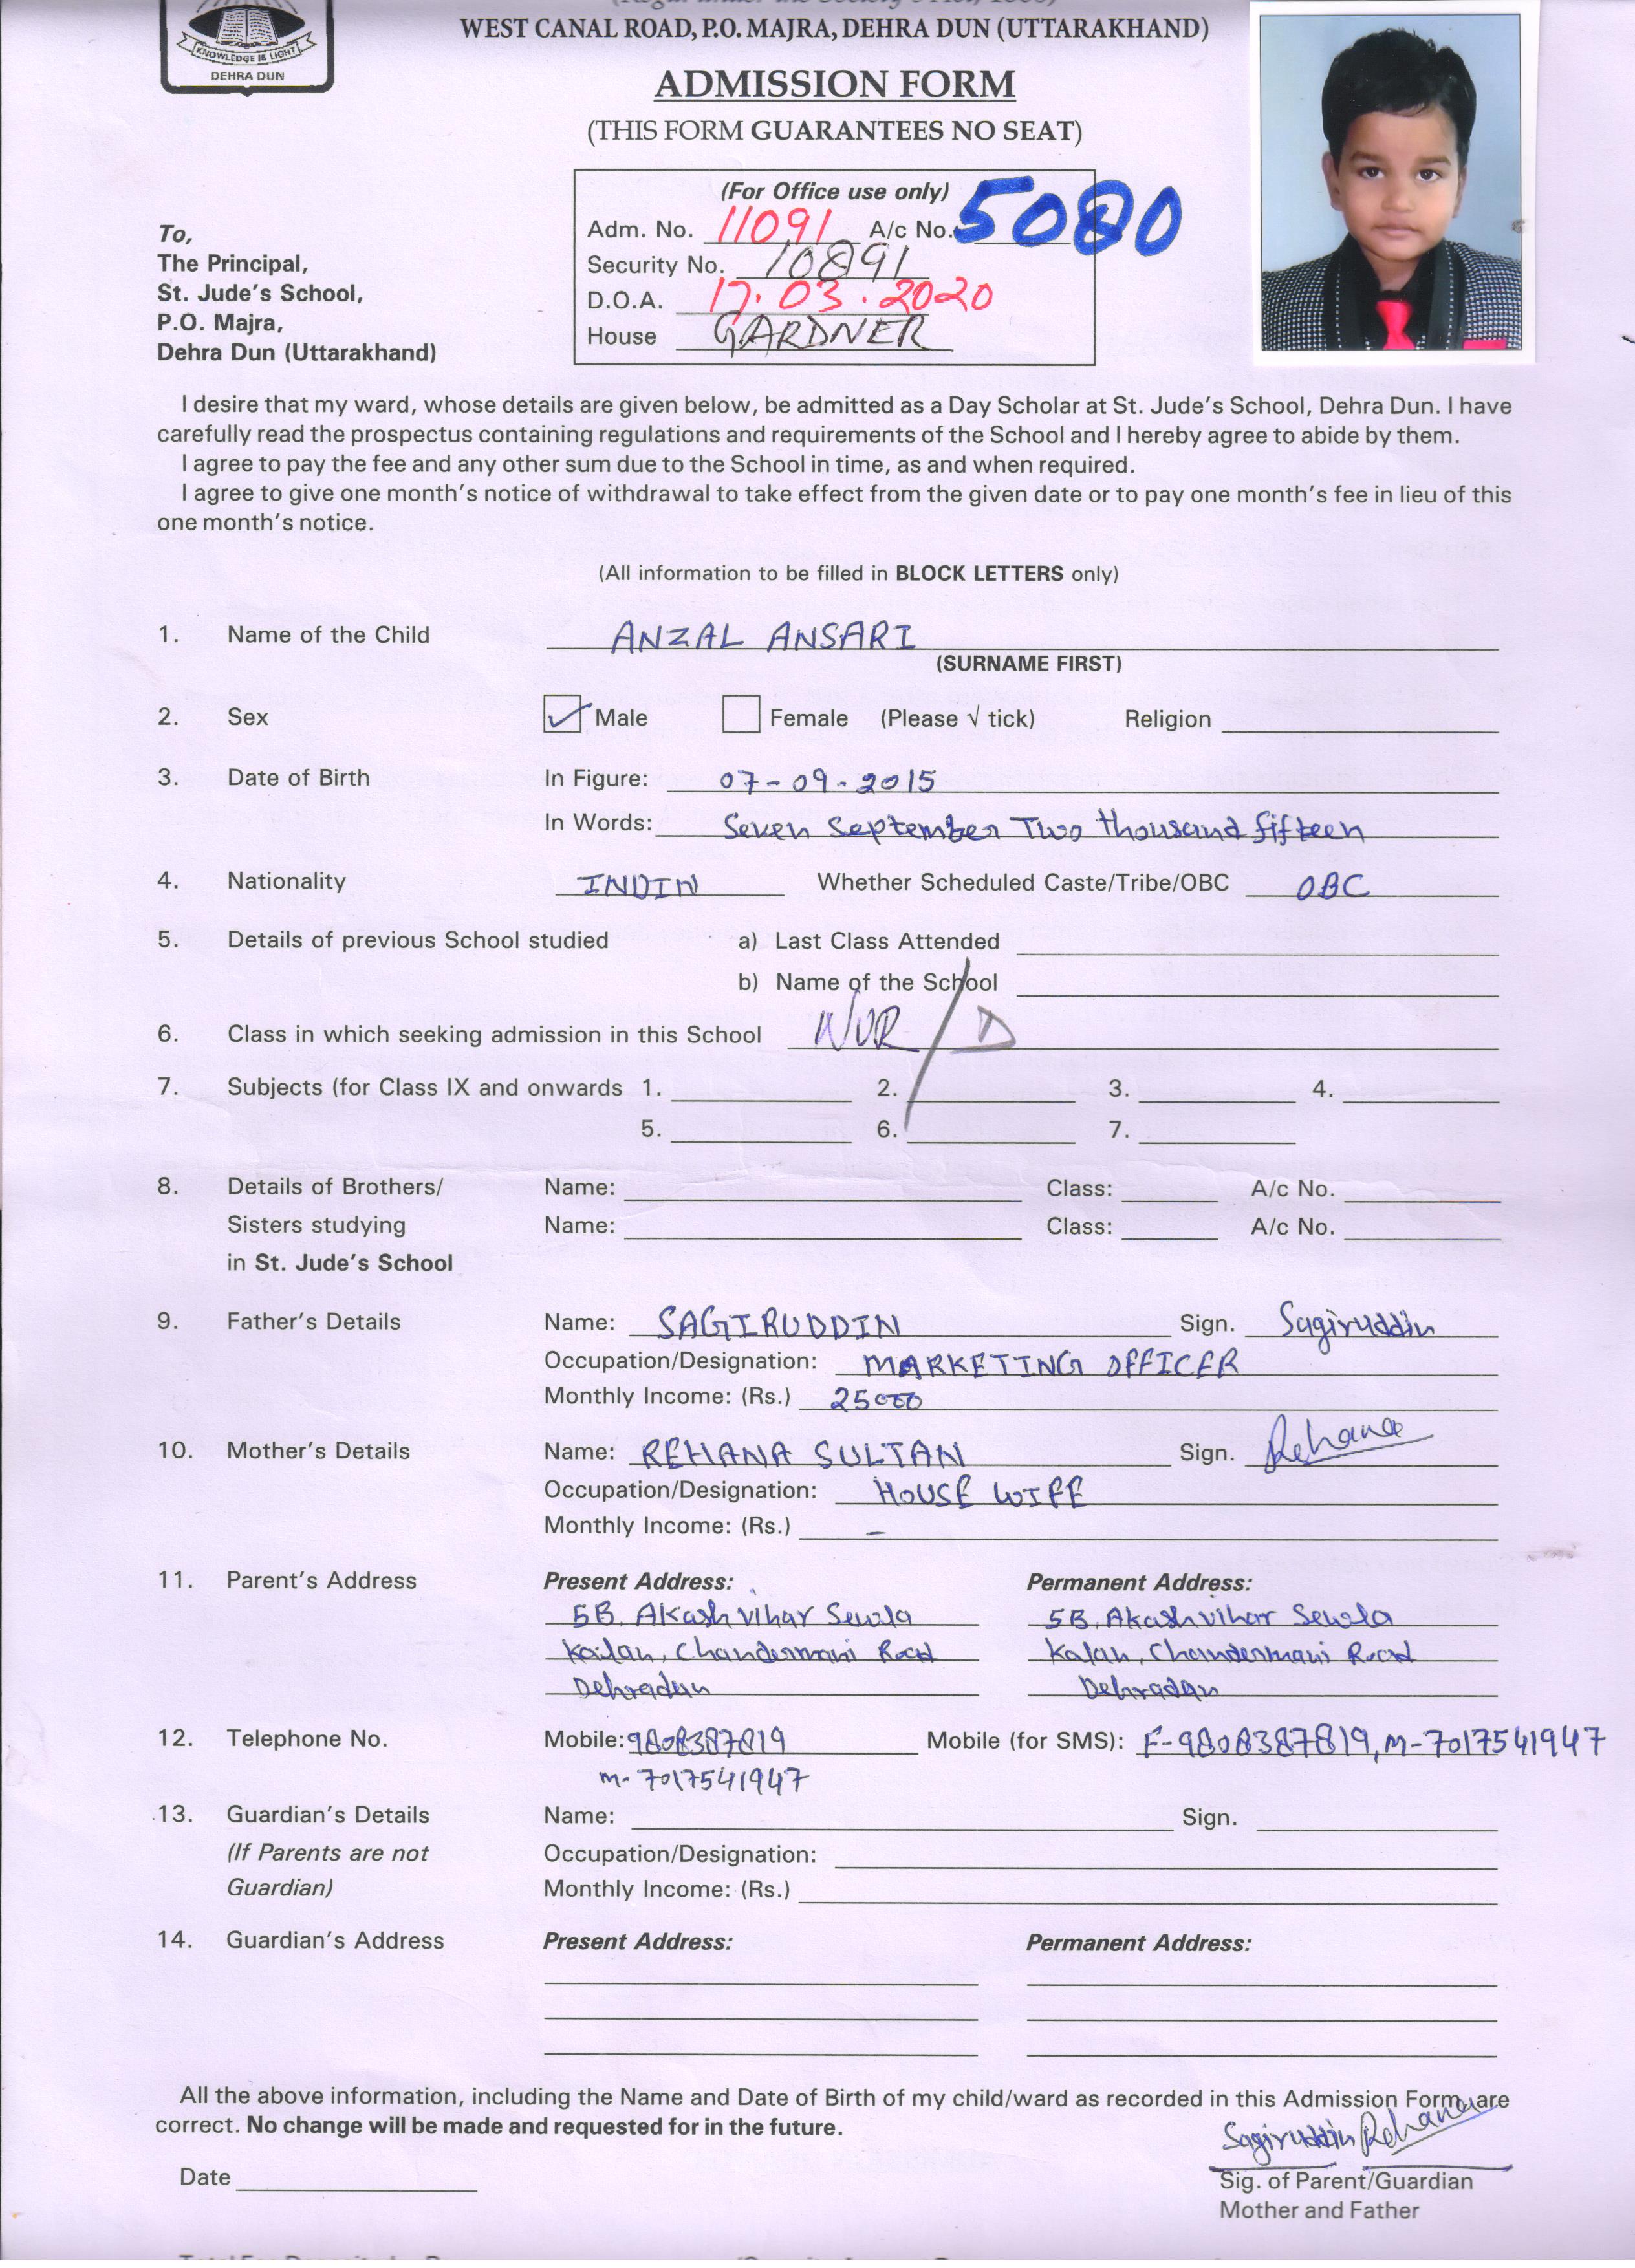 KNOWLEDGE IS LIGHT
DEHRA DUN
WEST CANAL ROAD, P.O. MAJRA, DEHRA DUN (UTTARAKHAND)
ADMISSION FORM
(THIS FORM GUARANTEES NO SEAT)
(For Office use only)
Adm. No. 11091 A/c No. 5080
Security No. 10891
D.O.A. 17.03.2020
House GARDNER
To,
The Principal,
St. Jude's School,
P.O. Majra,
Dehra Dun (Uttarakhand)
I desire that my ward, whose details are given below, be admitted as a Day Scholar at St. Jude's School, Dehra Dun. I have
carefully read the prospectus containing regulations and requirements of the School and I hereby agree to abide by them.
I agree to pay the fee and any other sum due to the School in time, as and when required.
I agree to give one month's notice of withdrawal to take effect from the given date or to pay one month's fee in lieu of this
one month's notice.
(All information to be filled in BLOCK LETTERS only)
1. Name of the Child ANZAL ANSARI
(SURNAME FIRST)
2. Sex Male Female (Please √ tick) Religion
3. Date of Birth In Figure: 07-09-2015
In Words: Seven September Two thousand fifteen
4. Nationality INDIN Whether Scheduled Caste/Tribe/OBC OBC
5. Details of previous School studied a) Last Class Attended
b) Name of the School
6. Class in which seeking admission in this School NUR/D
7. Subjects (for Class IX and onwards 1. 2. 3. 4.
5. 6. 7.
8. Details of Brothers/ Name: Class: A/c No.
Sisters studying Name: Class: A/c No.
in St. Jude's School
9. Father's Details Name: SAGIRUDDIN Sign. Sagiruddin
Occupation/Designation: MARKETING OFFICER
Monthly Income: (Rs.) 25000
10. Mother's Details Name: REHANA SULTAN Sign. Rehana
Occupation/Designation: HOUSE WIFE
Monthly Income: (Rs.) –
11. Parent's Address Present Address: Permanent Address:
5B, Akash vihar Sewla 5B, Akash vihar Sewla
Kalan, Chandermani Road Kalan, Chandermani Road
Dehradun Dehradun
12. Telephone No. Mobile: 9808387819 Mobile (for SMS): F-9808387819, M-7017541947
m-7017541947
13. Guardian's Details Name: Sign.
(If Parents are not Occupation/Designation:
Guardian) Monthly Income: (Rs.)
14. Guardian's Address Present Address: Permanent Address:
All the above information, including the Name and Date of Birth of my child/ward as recorded in this Admission Form are
correct. No change will be made and requested for in the future.
Sagiruddin Rehana
Date Sig. of Parent/Guardian
Mother and Father